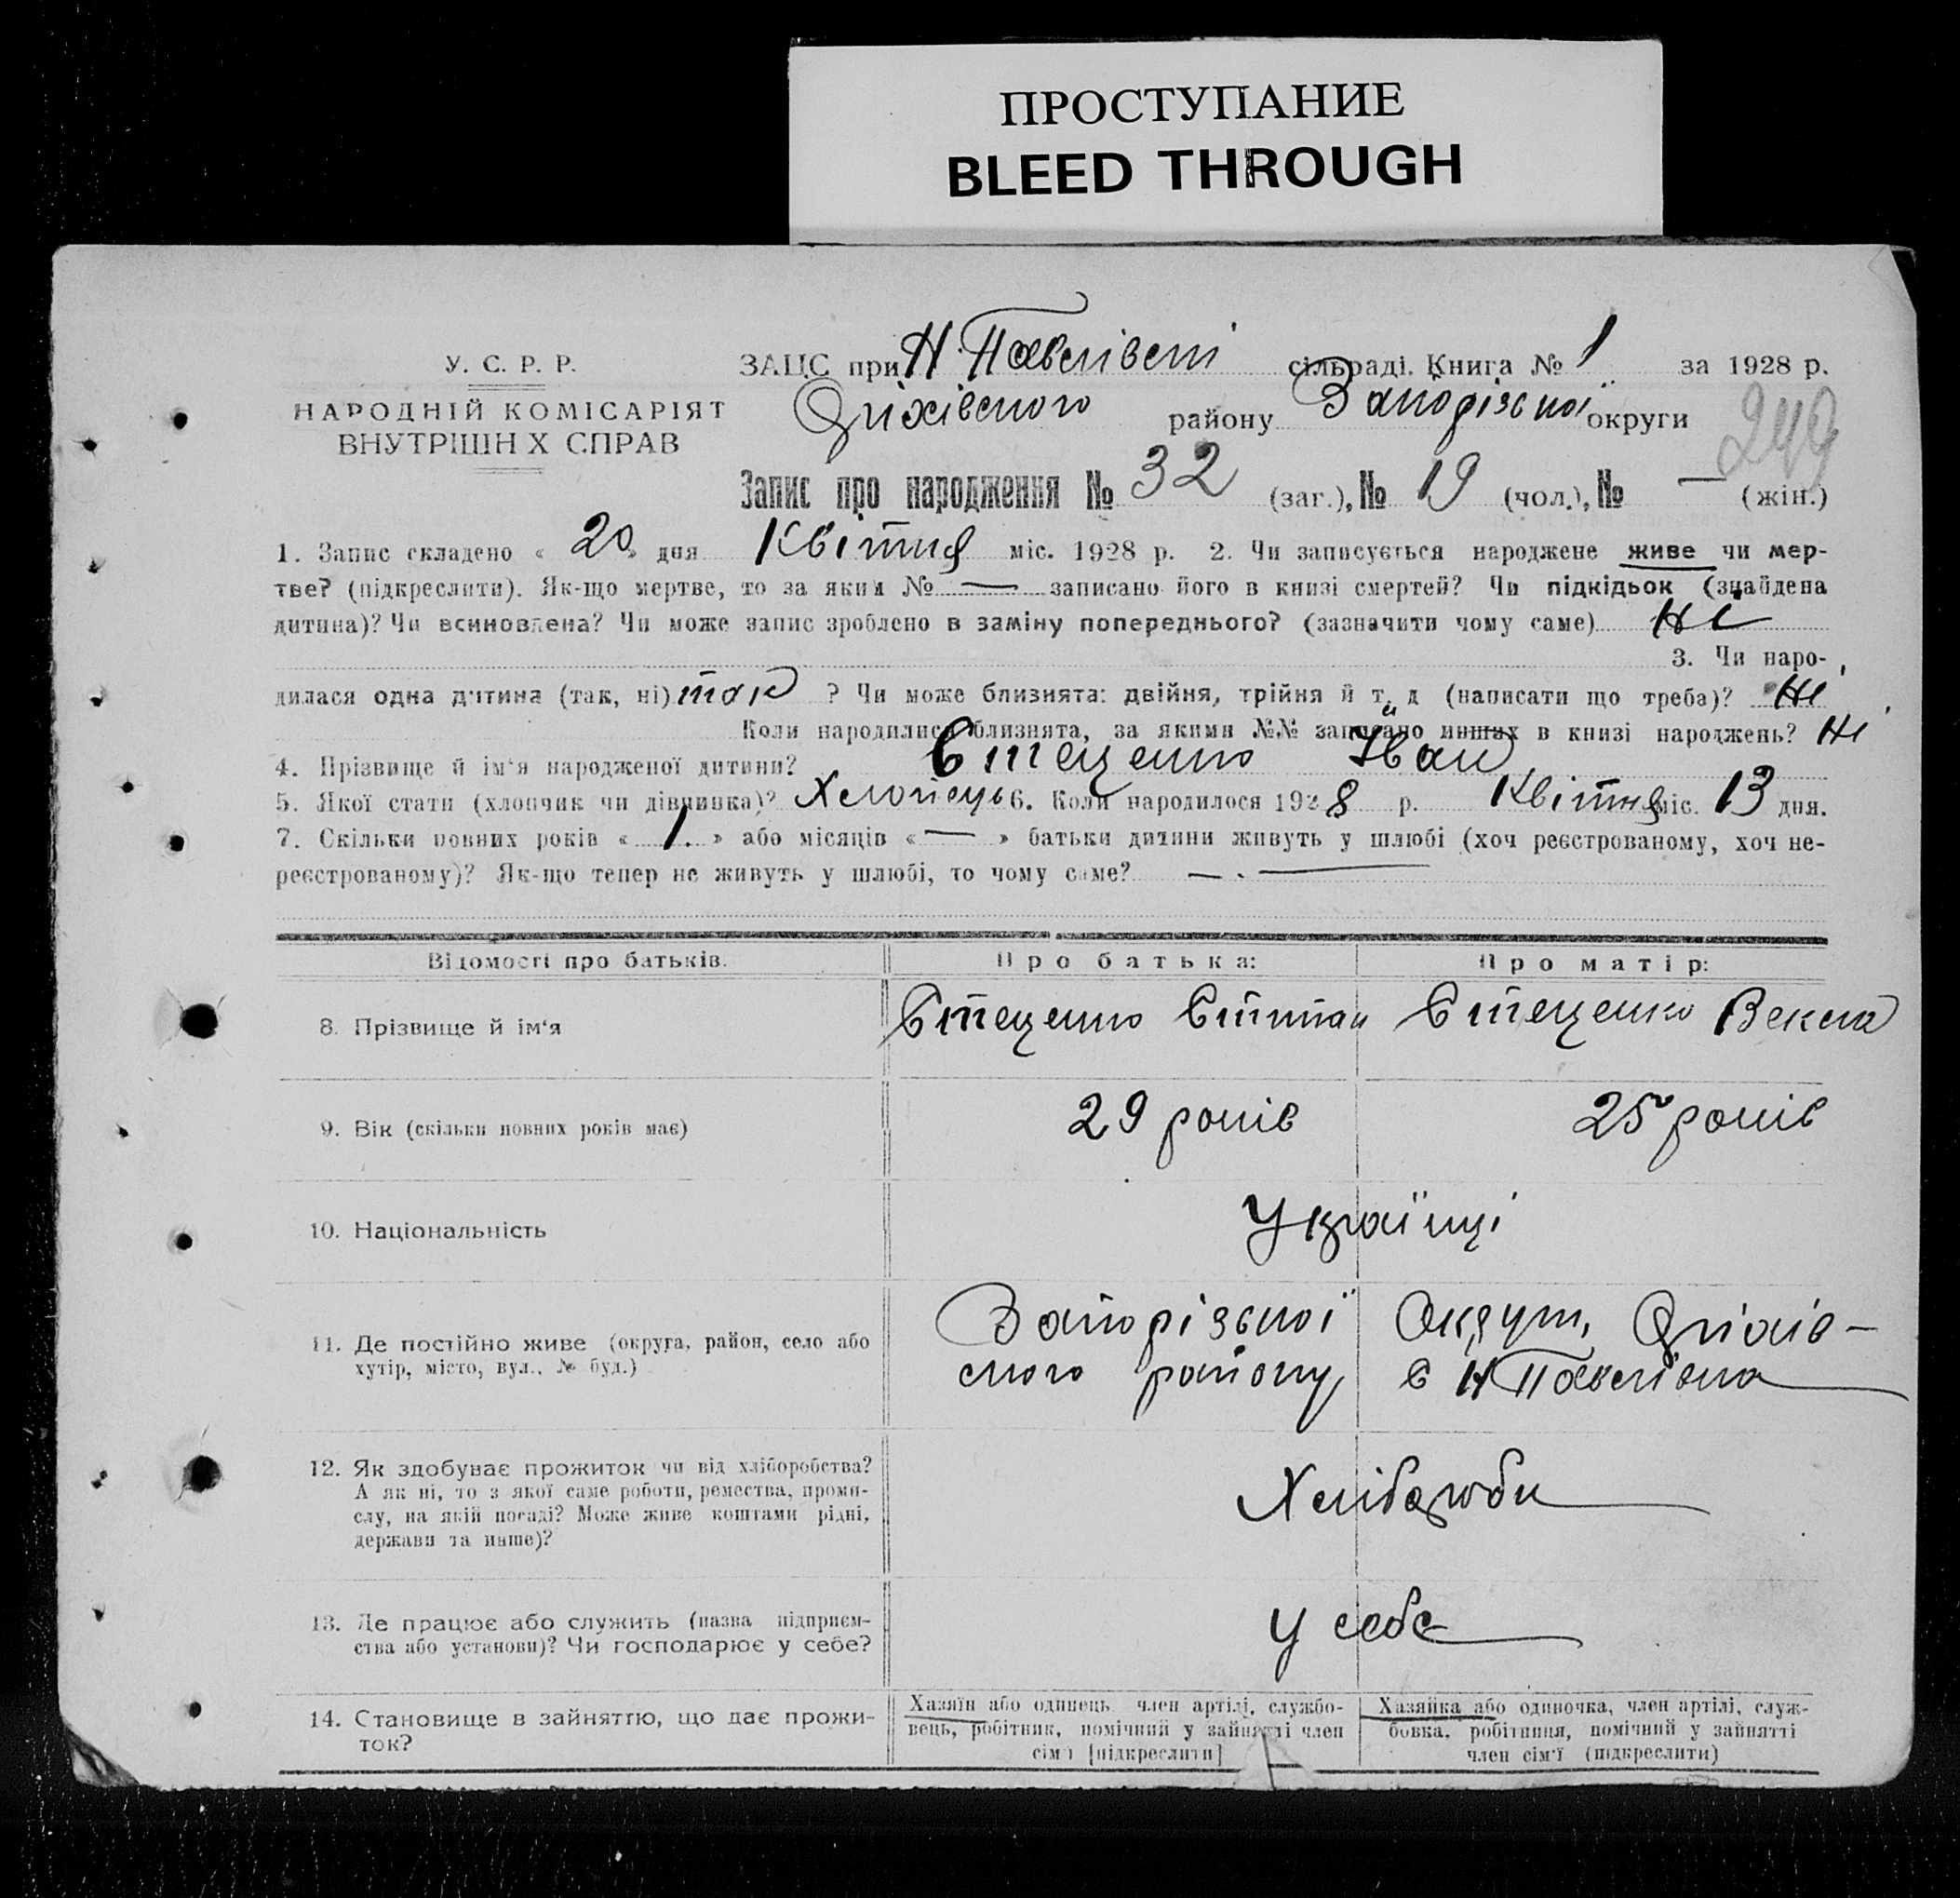 ПРОСТУПАНИЕ
BLEED THROUGH
У. С. Р. Р.
НАРОДНІЙ КОМІСАРІЯТ
ВНУТРІШН Х СПРАВ
ЗАЦС при Н. Павлівській сільраді. Книга № 1 за 1928 р.
Оріхівського району Запорізської округи
249
Запис про народження № 32 (заг.), № 19 (чол.), № — (жін.)
1. Запис складено « 20 » дня Квітня міс. 1928 р. 2. Чи записується народжене живе чи мер-
тве? (підкреслити). Як-що мертве, то за яким № — записано його в книзі смертей? Чи підкідьок (знайдена
дитина)? Чи всиновлена? Чи може запис зроблено в заміну попереднього? (зазначити чому саме) Ні
3. Чи наро-
дилася одна дитина (так, ні) так ? Чи може близнята: двійня, трійня й т. д (написати що треба)? Ні
Коли народилися близнята, за якими №№ записано инших в книзі народжень? Ні
4. Прізвище й ім'я народженої дитини? Стеценко Іван
5. Якої стати (хлопчик чи дівчинка)? Хлопець 6. Коли народилося 1928 р. Квітня міс. 13 дня.
7. Скільки повних років « 1 » або місяців « — » батьки дитини живуть у шлюбі (хоч реєстрованому, хоч не-
реєстрованому)? Як-що тепер не живуть у шлюбі, то чому саме? —
Відомості про батьків. Про батька: Про матір:
8. Прізвище й ім'я Стеценко Степан Стеценко Векла
9. Вік (скільки повних років має) 29 років 25 років
10. Національність Українці
11. Де постійно живе (округа, район, село або
хутір, місто, вул., № буд.)
Запорізської Округи, Оріхів-
ского району с Н Павлівка
12. Як здобуває прожиток чи від хліборобства?
А як ні, то з якої саме роботи, ремества, проми-
слу, на якій посаді? Може живе коштами рідні,
держави та инше)?
Хліборобы
13. Де працює або служить (назва підприєм-
ства або установи)? Чи господарює у себе?
У себе
14. Становище в зайняттю, що дає прожи-
ток?
Хазяїн або одинець член артілі, службо-
вець, робітник, помічний у зайнятті член
сім'ї [підкреслити]
Хазяйка або одиночка, член артілі, служ-
бовка, робітниця, помічний у зайнятті
член сім'ї (підкреслити)